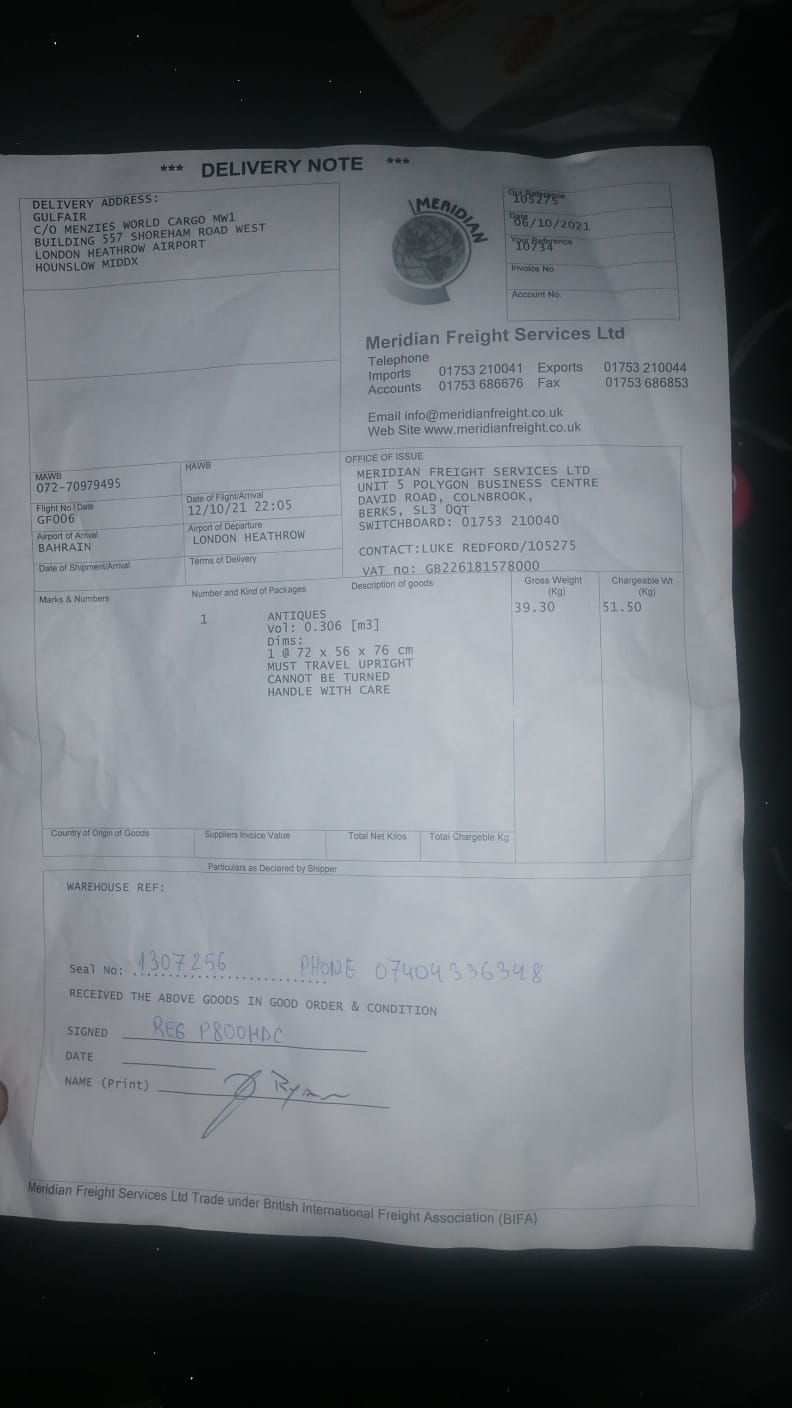 *** DELIVERY NOTE ***
DELIVERY ADDRESS:
GULFAIR
C/O MENZIES WORLD CARGO MW1
BUILDING 557 SHOREHAM ROAD WEST
LONDON HEATHROW AIRPORT
HOUNSLOW MIDDX
MERIDIAN
Our Reference
105275
Date
06/10/2021
Your Reference
10734
Invoice No.
Account No.
Meridian Freight Services Ltd
Telephone
Imports 01753 210041 Exports 01753 210044
Accounts 01753 686676 Fax 01753 686853
Email info@meridianfreight.co.uk
Web Site www.meridianfreight.co.uk
MAWB
072-70979495
HAWB
Flight No / Date
GF006
Date of Flight/Arrival
12/10/21 22:05
Airport of Arrival
BAHRAIN
Airport of Departure
LONDON HEATHROW
Date of Shipment/Arrival
Terms of Delivery
OFFICE OF ISSUE
MERIDIAN FREIGHT SERVICES LTD
UNIT 5 POLYGON BUSINESS CENTRE
DAVID ROAD, COLNBROOK,
BERKS, SL3 0QT
SWITCHBOARD: 01753 210040
CONTACT:LUKE REDFORD/105275
VAT no: GB226181578000
Marks & Numbers Number and Kind of Packages Description of goods Gross Weight (Kg) Chargeable Wt (Kg)
1 ANTIQUES 39.30 51.50
Vol: 0.306 [m3]
Dims:
1 @ 72 x 56 x 76 cm
MUST TRAVEL UPRIGHT
CANNOT BE TURNED
HANDLE WITH CARE
Country of Origin of Goods Suppliers Invoice Value Total Net Kilos Total Chargeble Kg
Particulars as Declared by Shipper
WAREHOUSE REF:
Seal No: 1307256 PHONE 07404336348
RECEIVED THE ABOVE GOODS IN GOOD ORDER & CONDITION
SIGNED REG P800HDC
DATE
NAME (Print) Ryan
Meridian Freight Services Ltd Trade under British International Freight Association (BIFA)